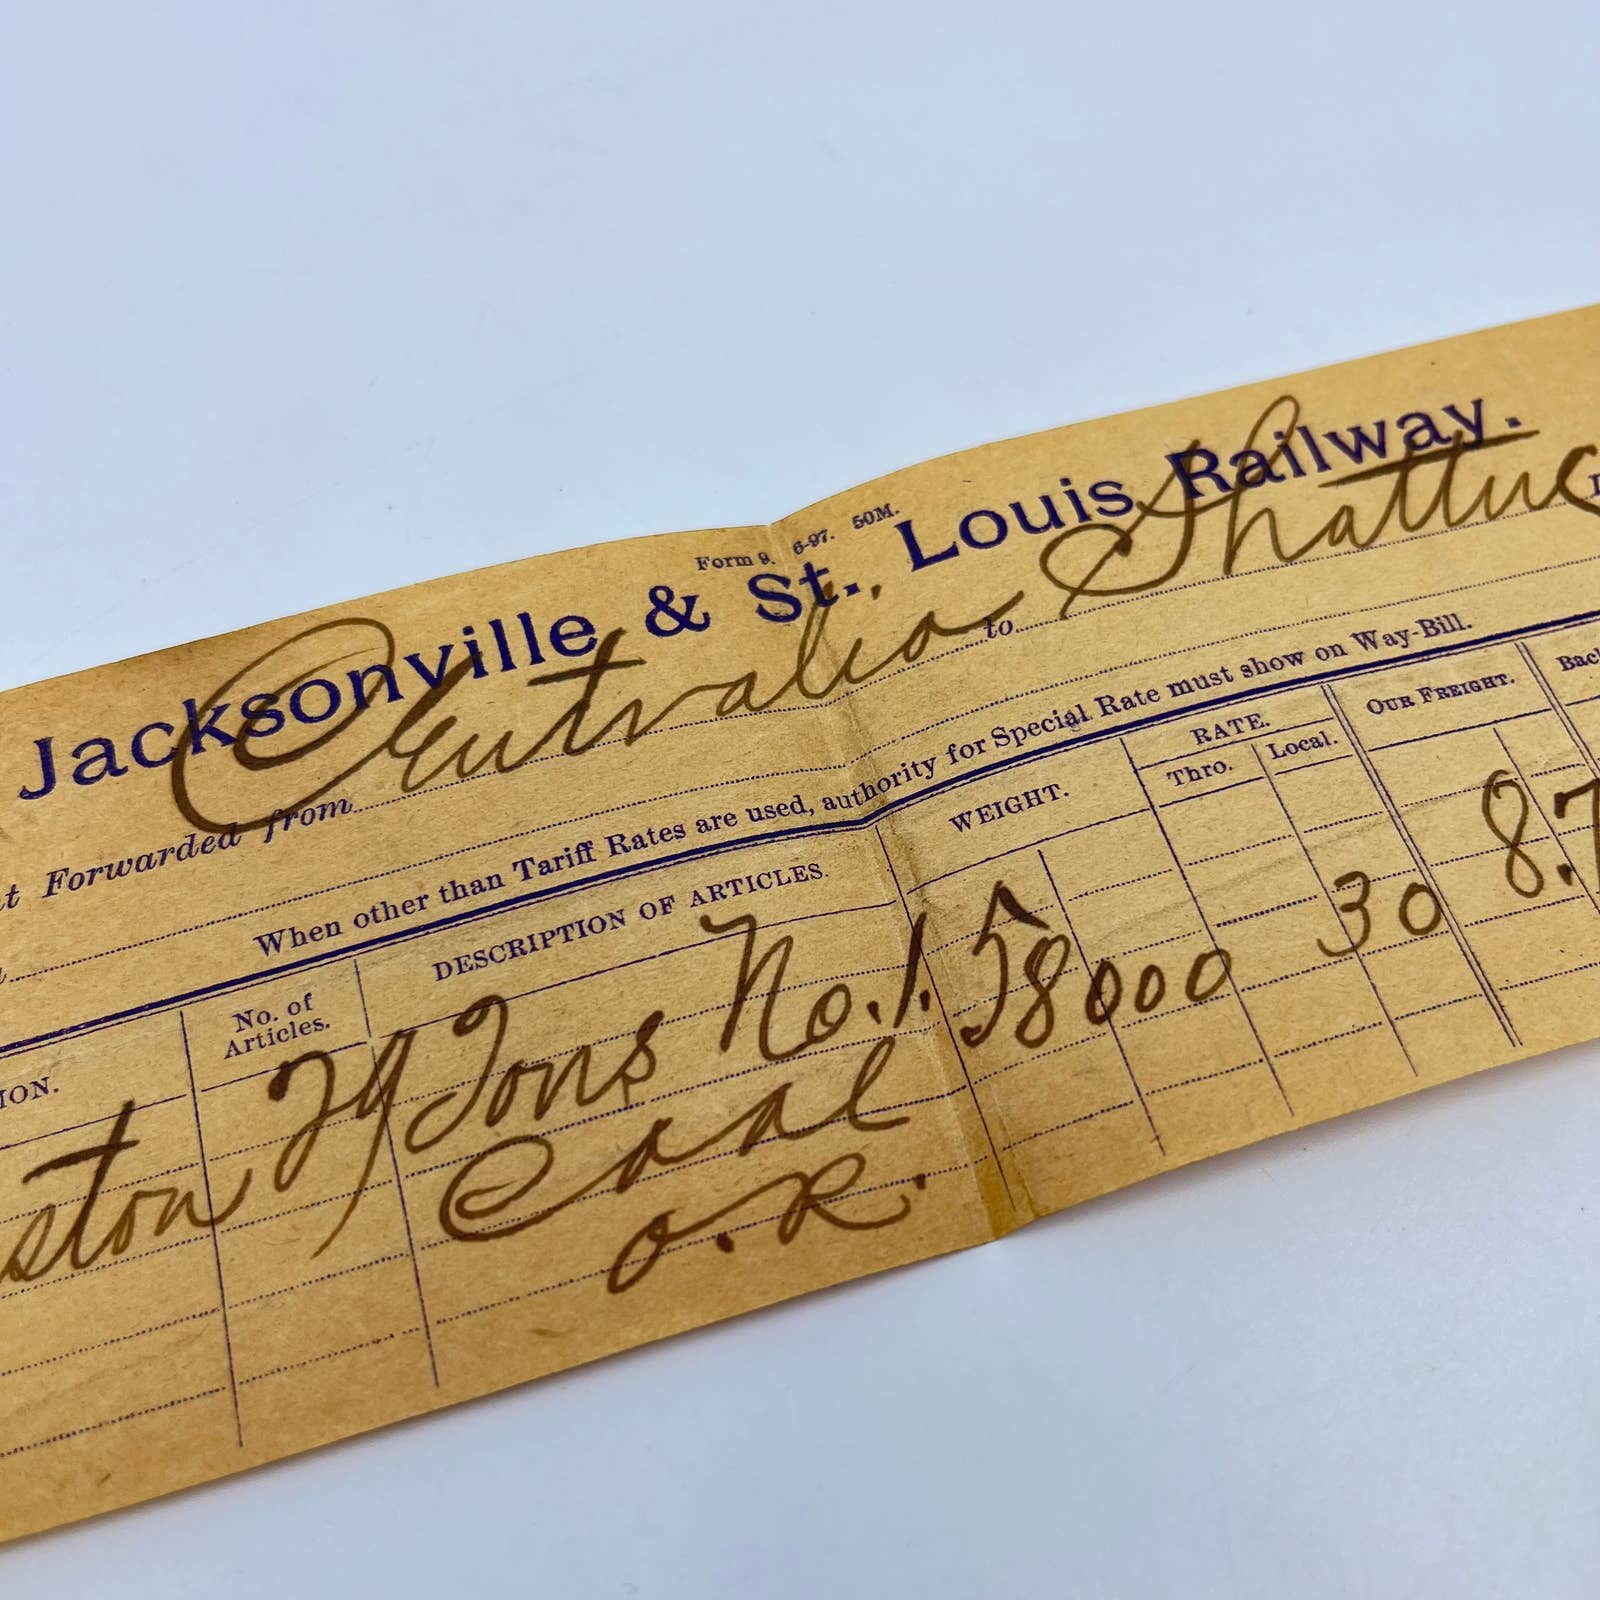 Form 9. 6-97. 50M.
Jacksonville & St. Louis Railway.
Forwarded from Centralia to Shattuc
When other than Tariff Rates are used, authority for Special Rate must show on Way-Bill.
No. of Articles. DESCRIPTION OF ARTICLES. WEIGHT. RATE. Thro. Local. OUR FREIGHT.
ston 29 Tons No. 1. 58000 30 8.7
Coal
O.R.